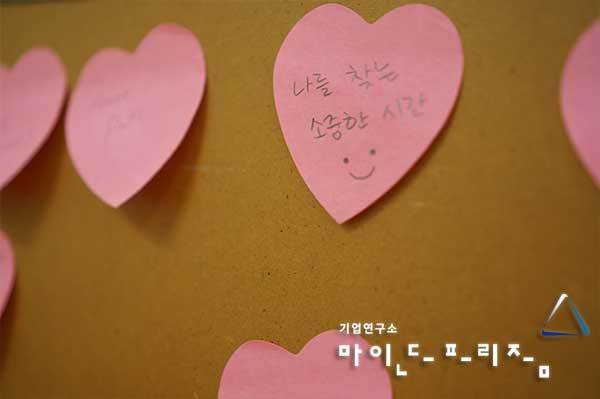 나를 찾는
소중한 시간
기업연구소
마인드프리즘